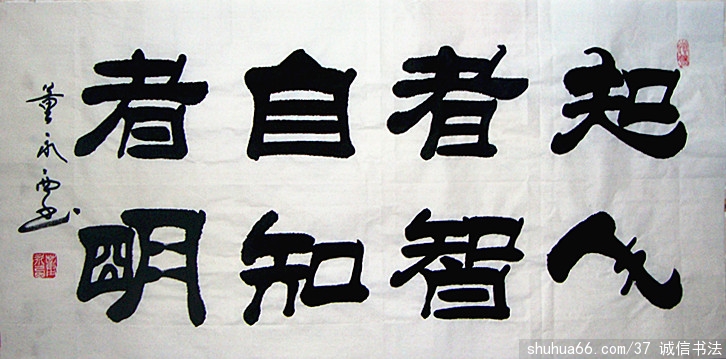 知人
者智
自知
者明
董永西书
shuhua66.com/37 诚信书法